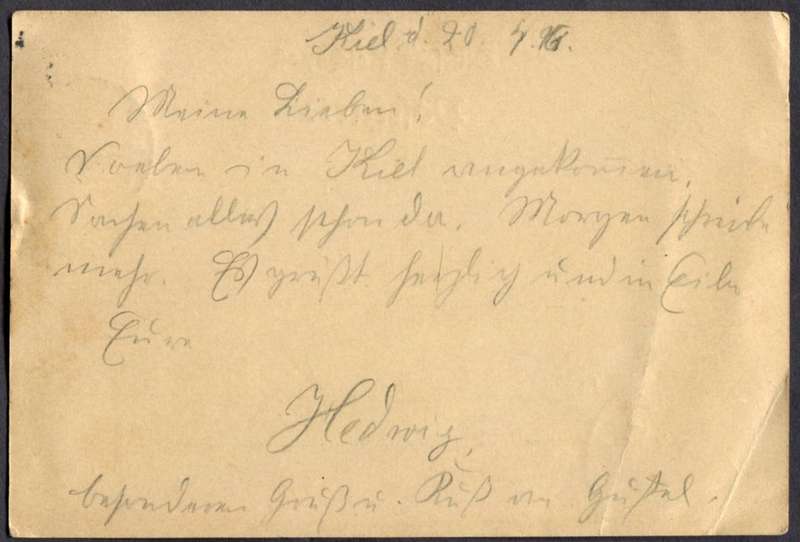 Kiel d. 20. 4.
Meine Lieben!
Soeben in Kiel angekommen.
Sachen alles schon da. Morgen schreibe
mehr. Es grüßt herzlich und in Eile
Eure
Hedwig,
besonderen Gruß u. Kuß an Gustel.